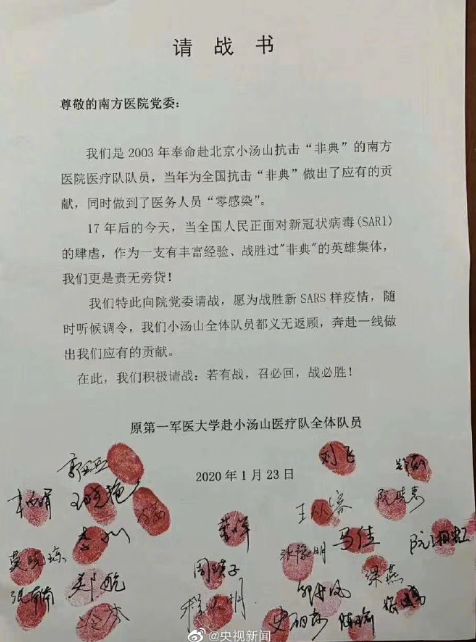 请 战 书
尊敬的南方医院党委：
我们是 2003 年奉命赴北京小汤山抗击“非典”的南方
医院医疗队队员，当年为全国抗击“非典”做出了应有的贡
献，同时做到了医务人员“零感染”。
17 年后的今天，当全国人民正面对新冠状病毒(SARI)
的肆虐，作为一支有丰富经验、战胜过"非典"的英雄集体，
我们更是责无旁贷！
我们特此向院党委请战，愿为战胜新 SARS 样疫情，随
时听候调令，我们小汤山全体队员都义无返顾，奔赴一线做
出我们应有的贡献。
在此，我们积极请战：若有战，召必回，战必胜！
原第一军医大学赴小汤山医疗队全体队员
2020 年 1 月 23 日
刘飞
马佳
@央视新闻